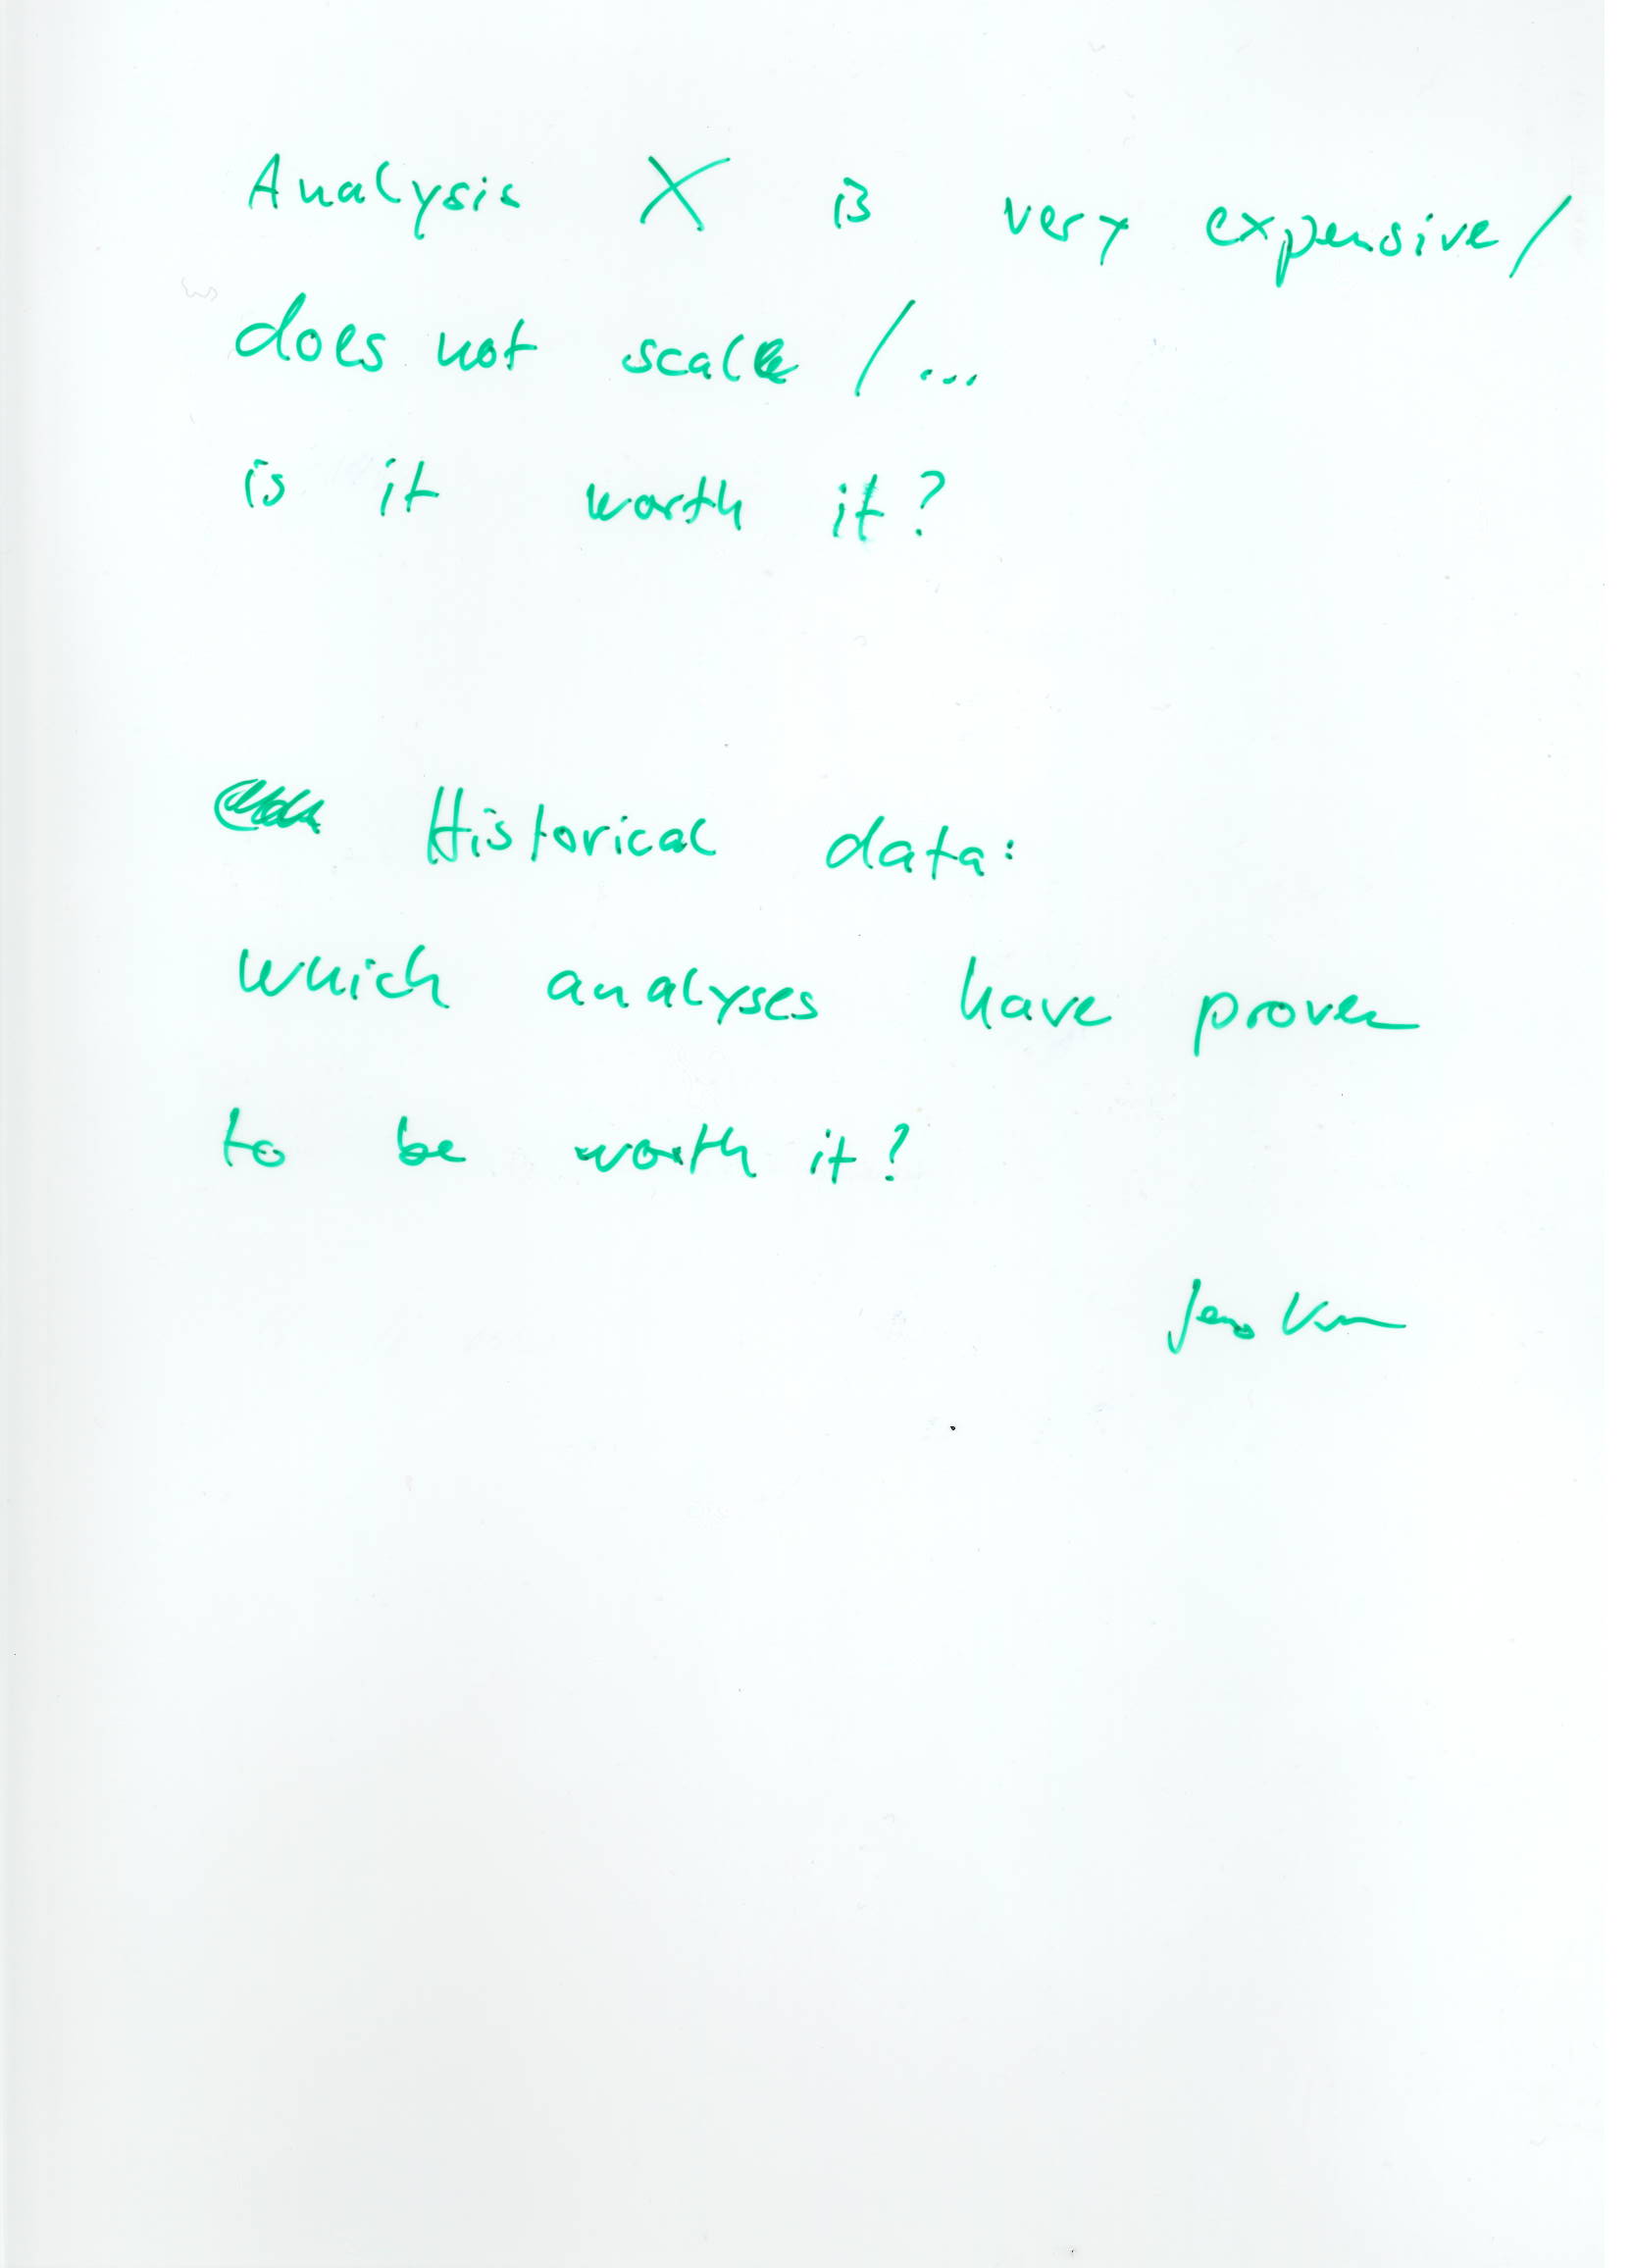 Analysis X is very expensive/
does not scale / ...
is it worth it?
Historical data:
which analyses have proven
to be worth it?